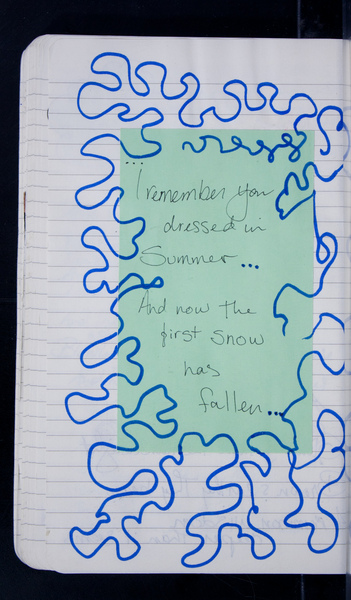 ...
I remember you
dressed in
Summer...
And now the
first snow
has
fallen...